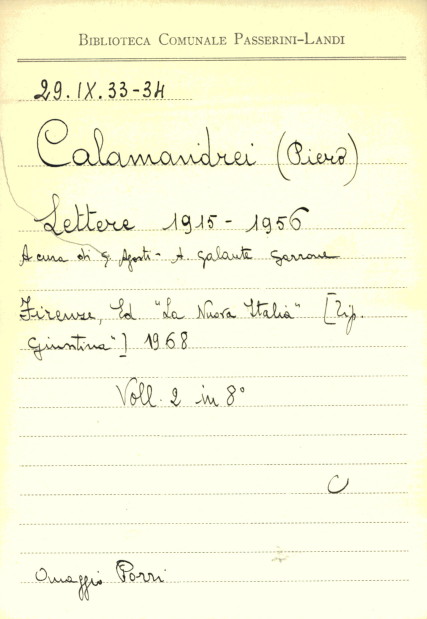 BIBLIOTECA COMUNALE PASSERINI-LANDI
29.IX.33-34
Calamandrei (Piero)
Lettere 1915 - 1956
A cura di G. Agosti - A. Galante Garrone
Firenze, Ed "La Nuova Italia" [Tip.
Giuntina"] 1968
Voll. 2 in 8°
C
Omaggio Porri